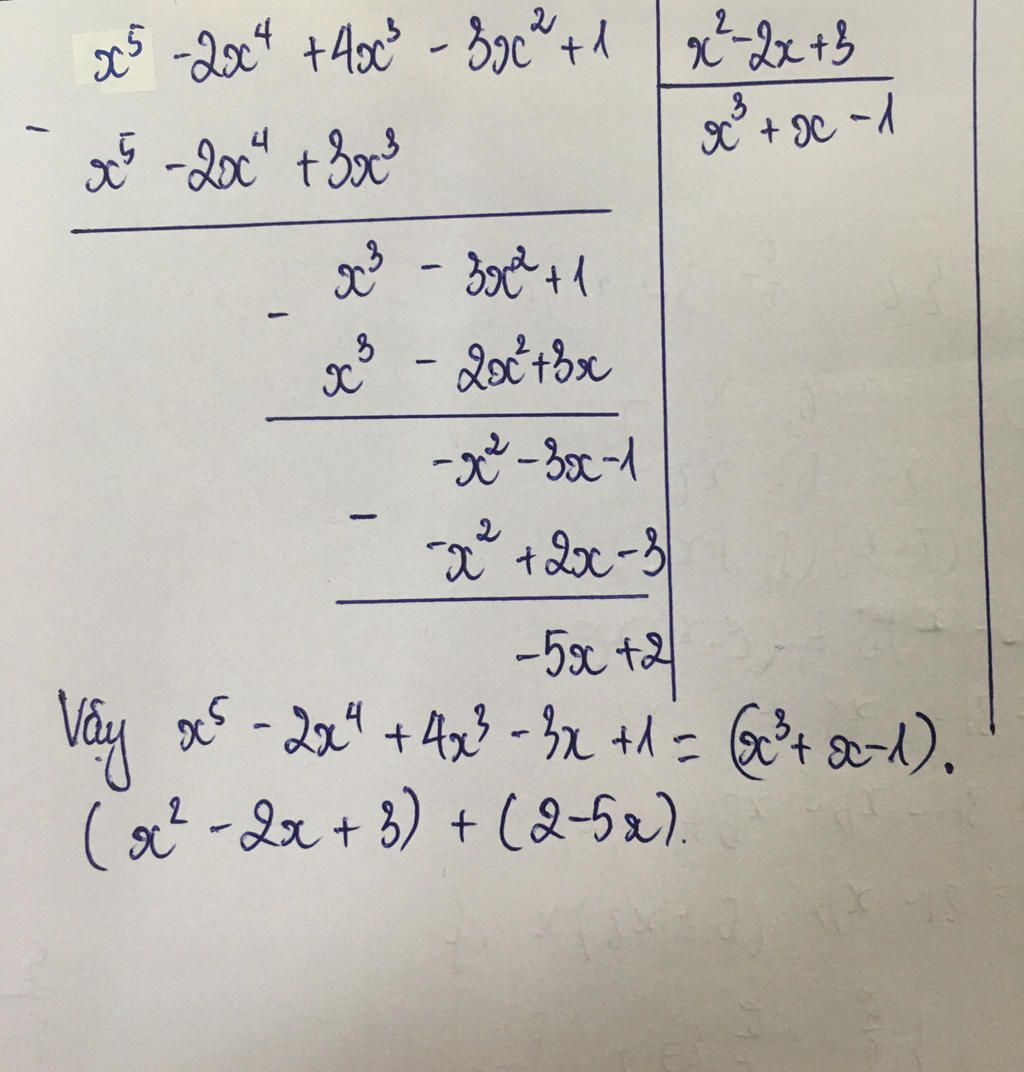 x⁵ -2x⁴ +4x³ - 3x² +1
x² -2x+3
x³ + x - 1
-
x⁵ -2x⁴ +3x³
x³ - 3x² +1
-
x³ - 2x² +3x
-x² -3x-1
-
-x² +2x-3
-5x +2
Vậy x⁵ - 2x⁴ + 4x³ - 3x + 1 = (x³ + x -1).
(x² - 2x + 3) + (2-5x).